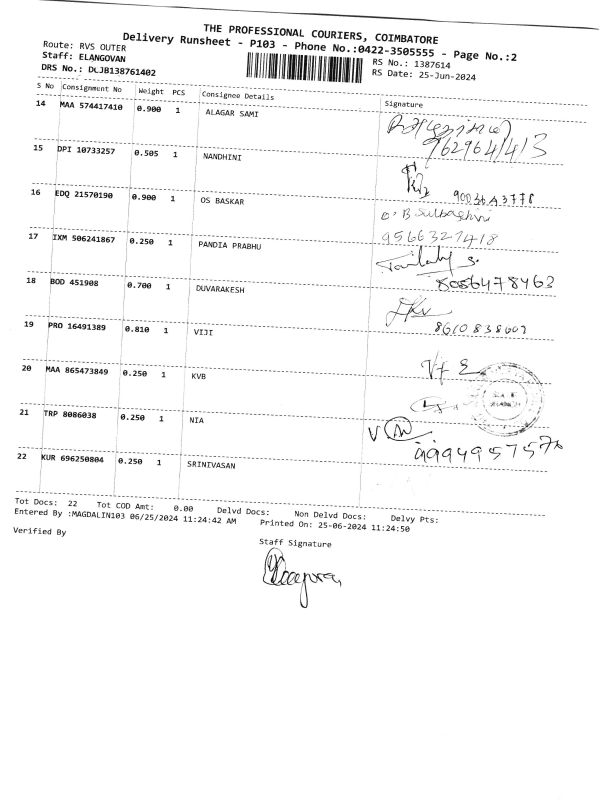 THE PROFESSIONAL COURIERS, COIMBATORE
Delivery Runsheet - P103 - Phone No.:0422-3505555 - Page No.:2
Route: RVS OUTER
Staff: ELANGOVAN
DRS No.: DLJB138761402
RS No.: 1387614
RS Date: 25-Jun-2024
S No Consignment No Weight PCS Consignee Details Signature
14 MAA 574417410 0.900 1 ALAGAR SAMI
9629641413
15 DPI 10733257 0.505 1 NANDHINI
9003643778
16 EDQ 21570190 0.900 1 OS BASKAR
9566327418
17 IXM 506241867 0.250 1 PANDIA PRABHU
8056478463
18 BOD 451908 0.700 1 DUVARAKESH
8610838607
19 PRO 16491389 0.810 1 VIJI
20 MAA 865473849 0.250 1 KVB
21 TRP 8086038 0.250 1 NIA
22 KUR 696250804 0.250 1 SRINIVASAN
Tot Docs: 22 Tot COD Amt: 0.00 Delvd Docs: Non Delvd Docs: Delvy Pts:
Entered By :MAGDALIN103 06/25/2024 11:24:42 AM Printed On: 25-06-2024 11:24:50
Verified By
Staff Signature